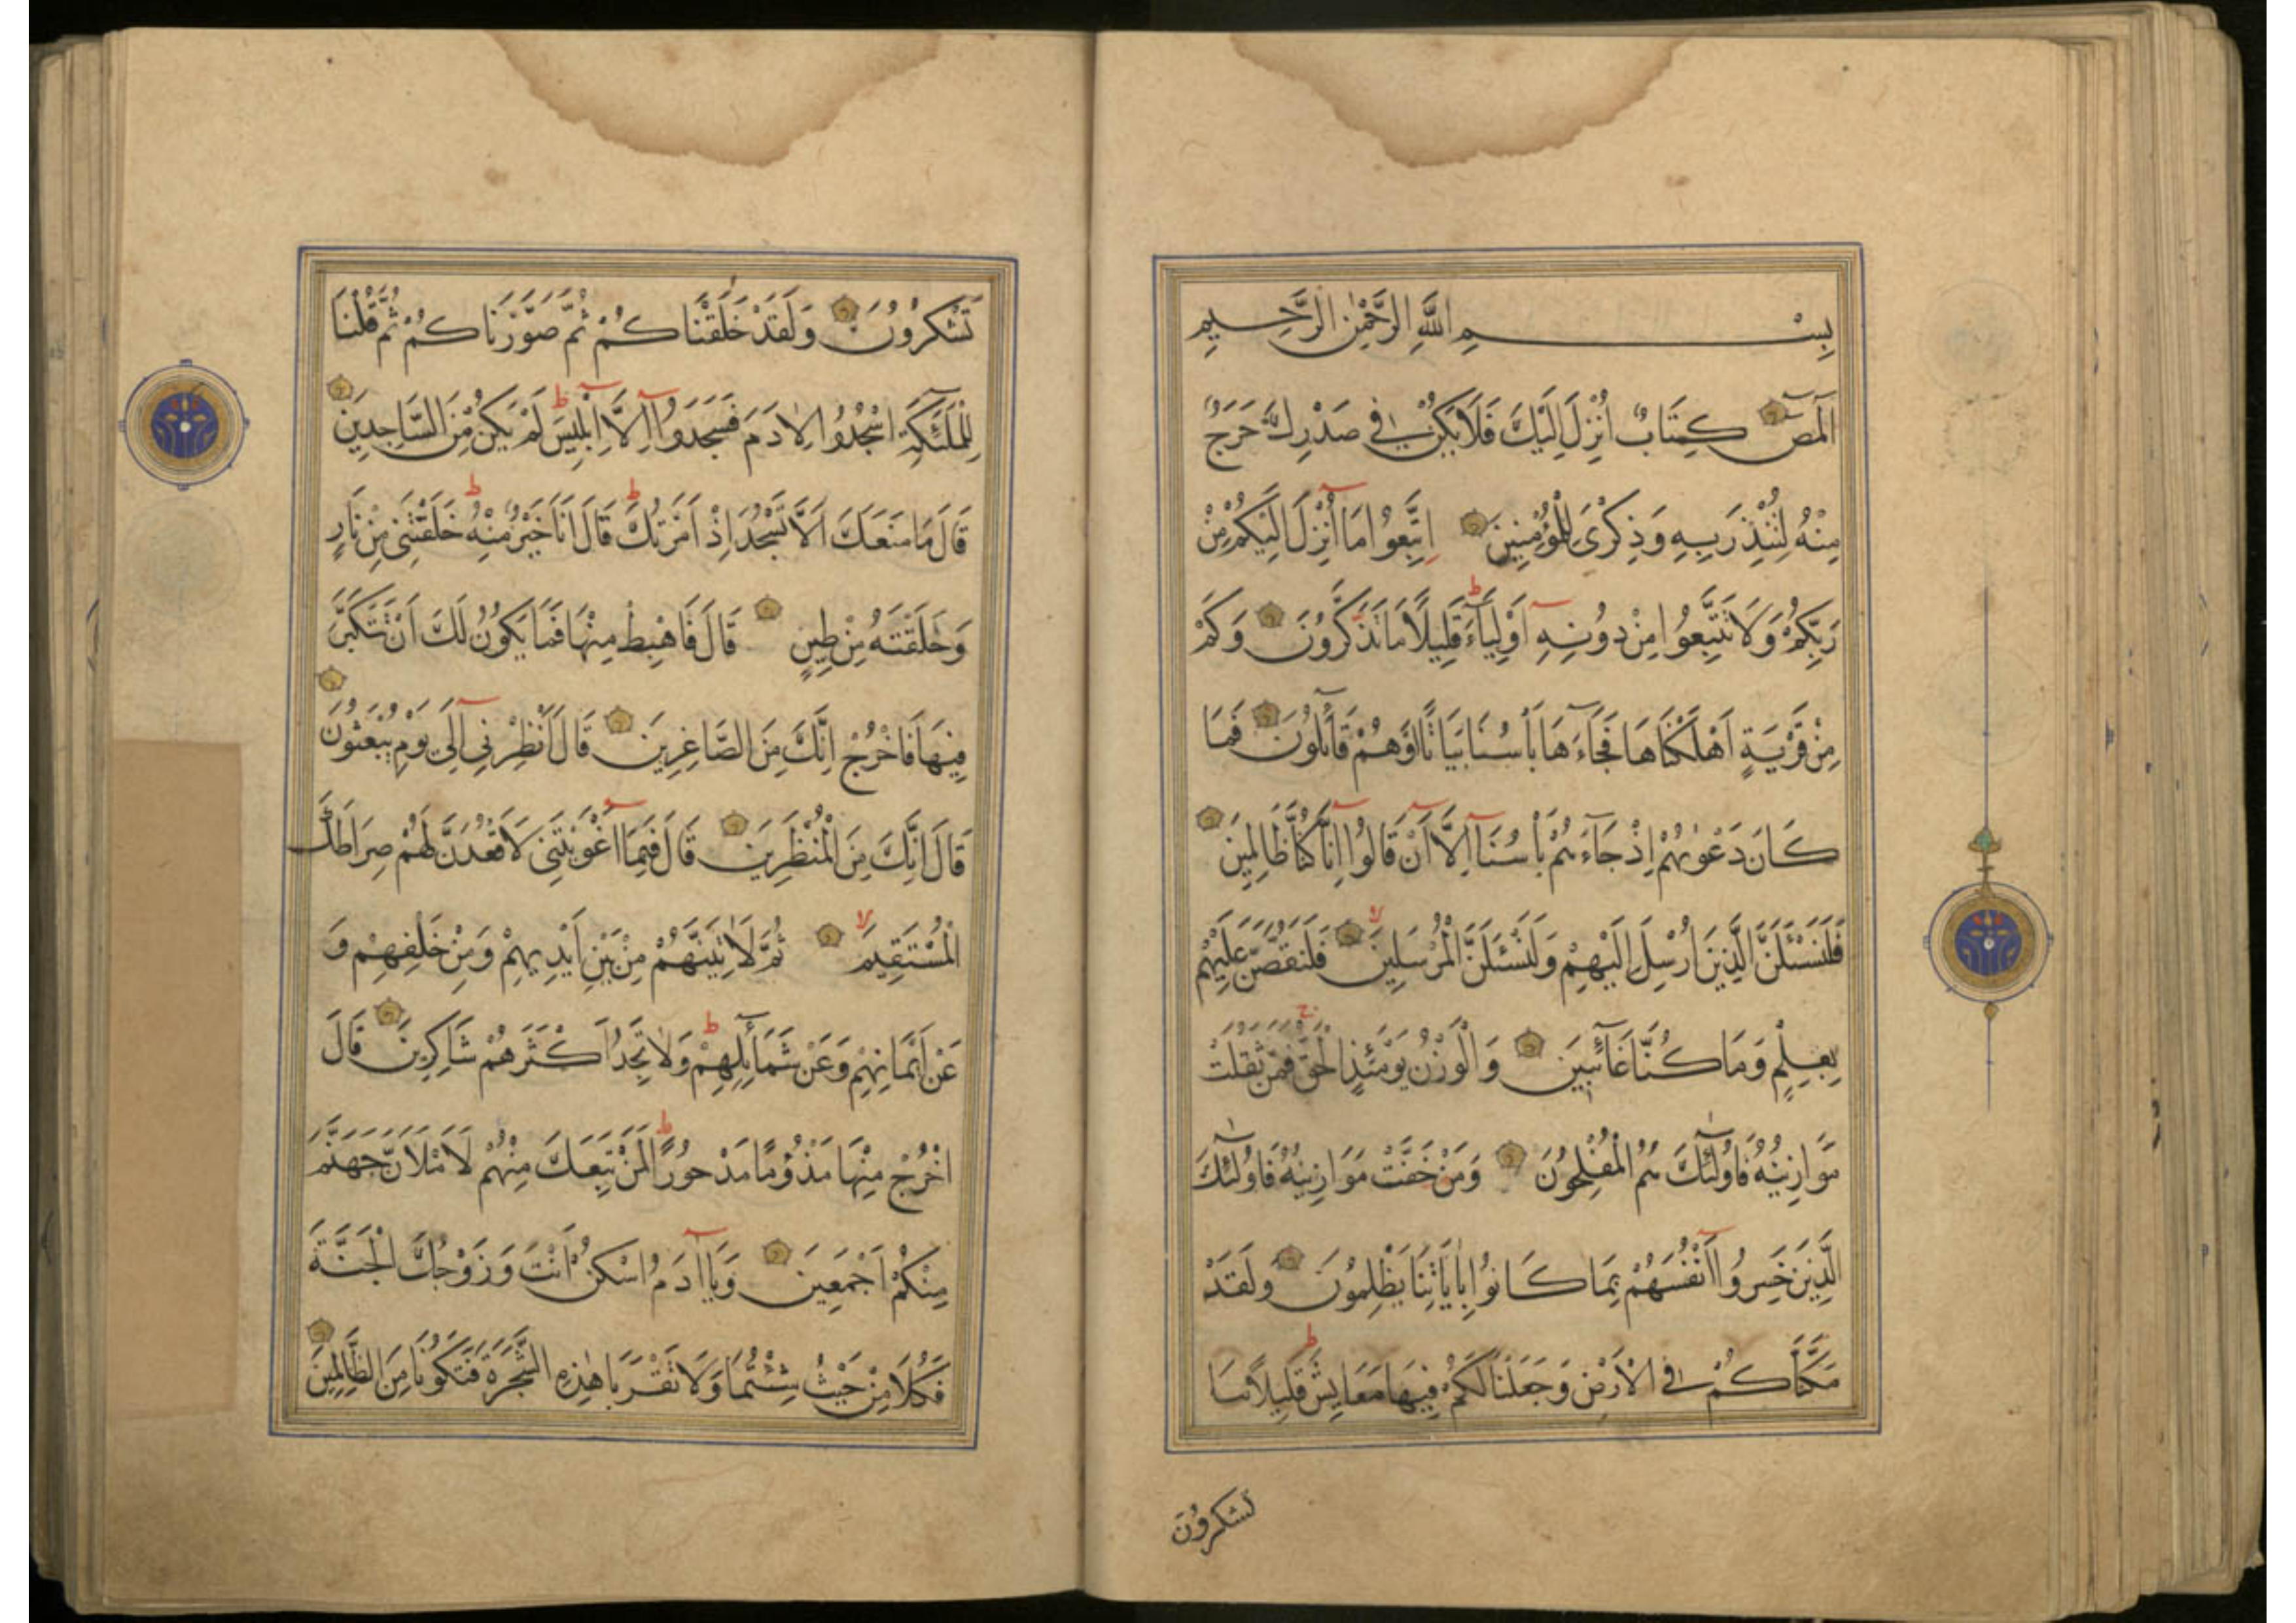 بِسْمِ اللَّهِ الرَّحْمٰنِ الرَّحِيمِ
الٓمٓصٓ كِتَابٌ اُنْزِلَ اِلَيْكَ فَلَا يَكُنْ فِي صَدْرِكَ حَرَجٌ
مِنْهُ لِتُنْذِرَ بِهِ وَذِكْرٰى لِلْمُؤْمِنِينَ اِتَّبِعُوا مَا اُنْزِلَ اِلَيْكُمْ مِنْ
رَبِّكُمْ وَلَا تَتَّبِعُوا مِنْ دُونِهِ اَوْلِيَآءَ قَلِيلًا مَا تَذَكَّرُونَ وَكَمْ
مِنْ قَرْيَةٍ اَهْلَكْنَاهَا فَجَآءَهَا بَأْسُنَا بَيَاتًا اَوْ هُمْ قَآئِلُونَ فَمَا
كَانَ دَعْوٰيهُمْ اِذْ جَآءَهُمْ بَأْسُنَا اِلَّا اَنْ قَالُوا اِنَّا كُنَّا ظَالِمِينَ
فَلَنَسْـَٔلَنَّ الَّذِينَ اُرْسِلَ اِلَيْهِمْ وَلَنَسْـَٔلَنَّ الْمُرْسَلِينَ فَلَنَقُصَّنَّ عَلَيْهِمْ
بِعِلْمٍ وَمَا كُنَّا غَآئِبِينَ وَالْوَزْنُ يَوْمَئِذٍ الْحَقُّ فَمَنْ ثَقُلَتْ
مَوَازِينُهُ فَاُولٰٓئِكَ هُمُ الْمُفْلِحُونَ وَمَنْ خَفَّتْ مَوَازِينُهُ فَاُولٰٓئِكَ
الَّذِينَ خَسِرُوا اَنْفُسَهُمْ بِمَا كَانُوا بِاٰيَاتِنَا يَظْلِمُونَ وَلَقَدْ
مَكَّنَّاكُمْ فِي الْاَرْضِ وَجَعَلْنَا لَكُمْ فِيهَا مَعَايِشَ قَلِيلًا مَا
تشكرون
تَشْكُرُونَ وَلَقَدْ خَلَقْنَاكُمْ ثُمَّ صَوَّرْنَاكُمْ ثُمَّ قُلْنَا
لِلْمَلٰٓئِكَةِ اسْجُدُوا لِاٰدَمَ فَسَجَدُوا اِلَّا اِبْلِيسَ لَمْ يَكُنْ مِنَ السَّاجِدِينَ
قَالَ مَا مَنَعَكَ اَلَّا تَسْجُدَ اِذْ اَمَرْتُكَ قَالَ اَنَا خَيْرٌ مِنْهُ خَلَقْتَنِي مِنْ نَارٍ
وَخَلَقْتَهُ مِنْ طِينٍ قَالَ فَاهْبِطْ مِنْهَا فَمَا يَكُونُ لَكَ اَنْ تَتَكَبَّرَ
فِيهَا فَاخْرُجْ اِنَّكَ مِنَ الصَّاغِرِينَ قَالَ اَنْظِرْنِي اِلٰى يَوْمِ يُبْعَثُونَ
قَالَ اِنَّكَ مِنَ الْمُنْظَرِينَ قَالَ فَبِمَا اَغْوَيْتَنِي لَاَقْعُدَنَّ لَهُمْ صِرَاطَكَ
الْمُسْتَقِيمَ ثُمَّ لَاٰتِيَنَّهُمْ مِنْ بَيْنِ اَيْدِيهِمْ وَمِنْ خَلْفِهِمْ وَ
عَنْ اَيْمَانِهِمْ وَعَنْ شَمَآئِلِهِمْ وَلَا تَجِدُ اَكْثَرَهُمْ شَاكِرِينَ قَالَ
اخْرُجْ مِنْهَا مَذْؤُمًا مَدْحُورًا لَمَنْ تَبِعَكَ مِنْهُمْ لَاَمْلَاَنَّ جَهَنَّمَ
مِنْكُمْ اَجْمَعِينَ وَيَا اٰدَمُ اسْكُنْ اَنْتَ وَزَوْجُكَ الْجَنَّةَ
فَكُلَا مِنْ حَيْثُ شِئْتُمَا وَلَا تَقْرَبَا هٰذِهِ الشَّجَرَةَ فَتَكُونَا مِنَ الظَّالِمِينَ